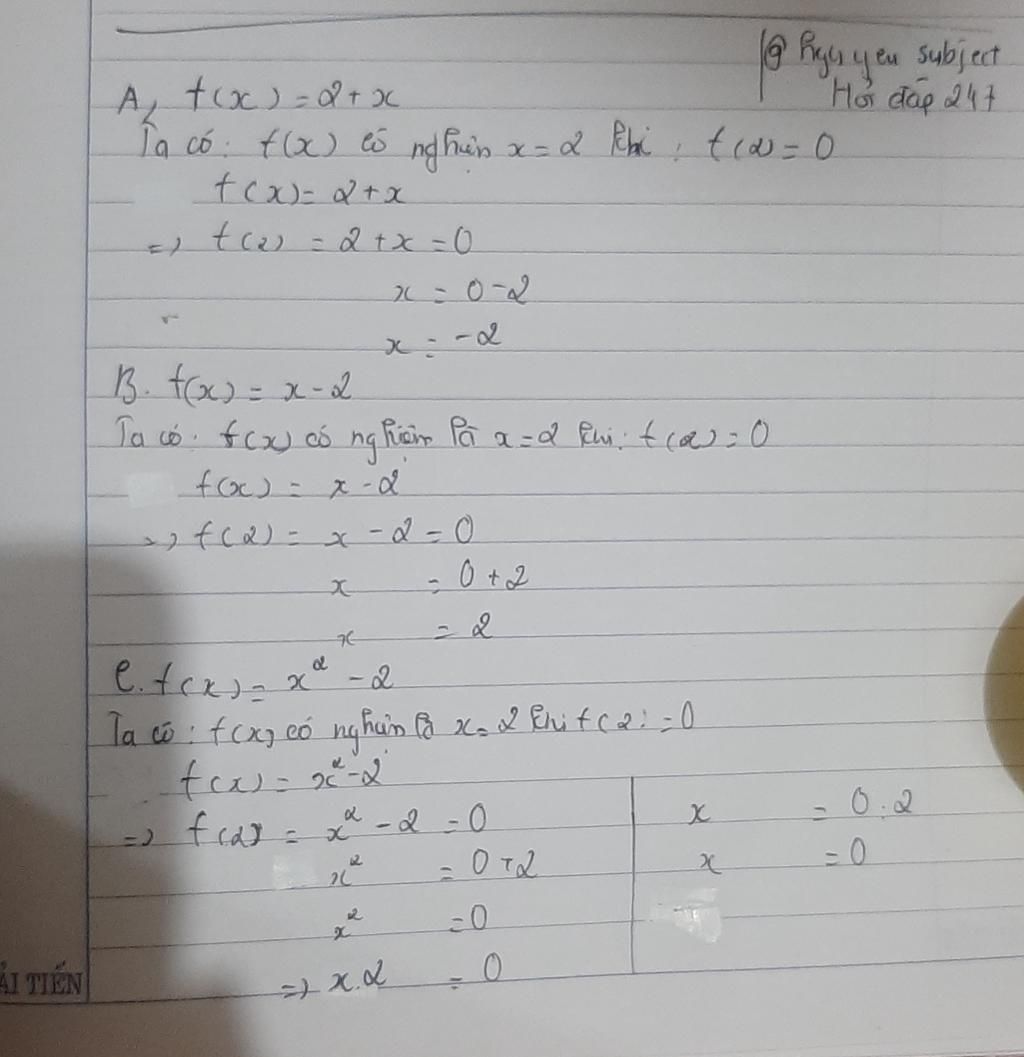 @ Nguyen subject
Hỏi đáp 247
A, f(x) = 2 + x
Ta có: f(x) có nghiệm x = 2 khi : f(2) = 0
f(x) = 2 + x
=> f(2) = 2 + x = 0
x = 0 - 2
x = -2
B. f(x) = x - 2
Ta có: f(x) có nghiệm là x = 2 khi: f(2) = 0
f(x) = x - 2
=> f(2) = x - 2 = 0
x = 0 + 2
x = 2
C. f(x) = x² - 2
Ta có: f(x) có nghiệm là x = 2 khi f(2) = 0
f(x) = x² - 2
=> f(2) = x² - 2 = 0
x² = 0 + 2
x² = 0
=> x.2 = 0
x = 0:2
x = 0
ẢI TIẾN